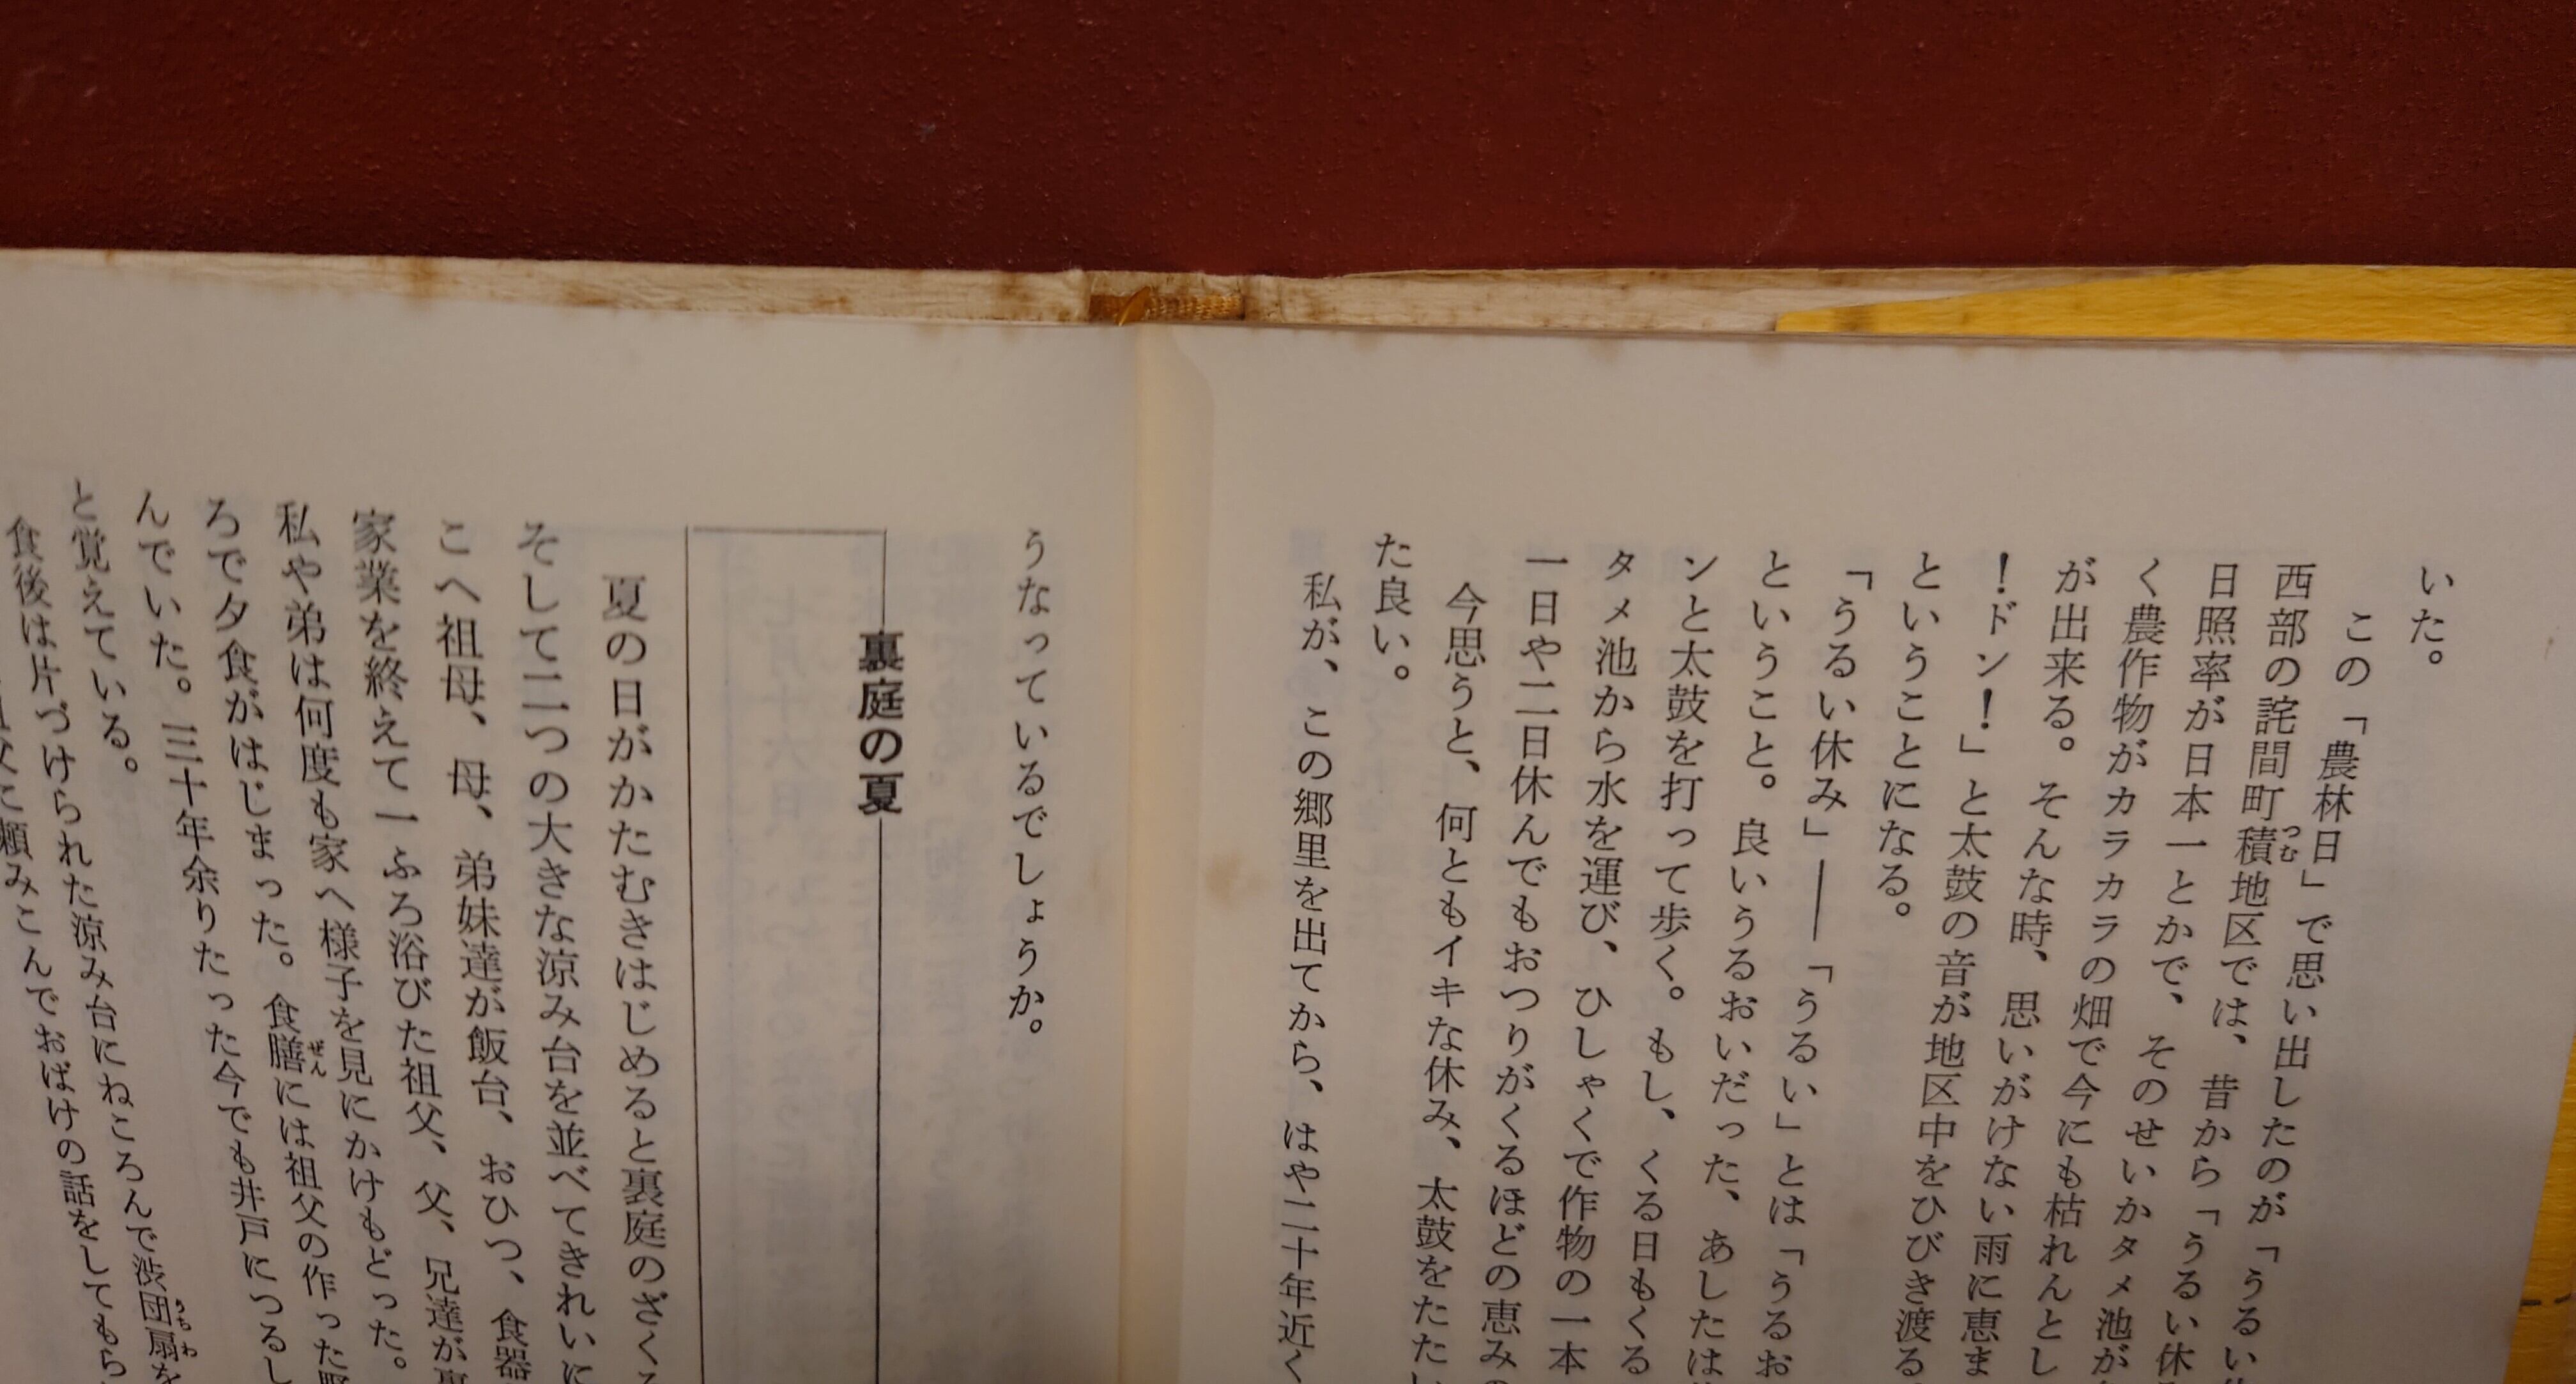 いた。
この「農林日」で思い出したのが「うるい
西部の詫間町積地区では、昔から「うるい休
日照率が日本一とかで、そのせいかタメ池が
く農作物がカラカラの畑で今にも枯れんとし
が出来る。そんな時、思いがけない雨に恵ま
！ドン！」と太鼓の音が地区中をひびき渡る
ということになる。
「うるい休み」——「うるい」とは「うるお
ということ。良いうるおいだった、あしたは
ンと太鼓を打って歩く。もし、くる日もくる
タメ池から水を運び、ひしゃくで作物の一本
一日や二日休んでもおつりがくるほどの恵み
今思うと、何ともイキな休み、太鼓をたたい
た良い。
私が、この郷里を出てから、はや二十年近く
うなっているでしょうか。
裏庭の夏
夏の日がかたむきはじめると裏庭のざくろ
そして二つの大きな涼み台を並べてきれいに
こへ祖母、母、弟妹達が飯台、おひつ、食器
家業を終えて一ふろ浴びた祖父、父、兄達が裏
私や弟は何度も家へ様子を見にかけもどった。
ろで夕食がはじまった。食膳には祖父の作った野
んでいた。三十年余りたった今でも井戸につるし
と覚えている。
食後は片づけられた涼み台にねころんで渋団扇を
に頼みこんでおばけの話をしてもら